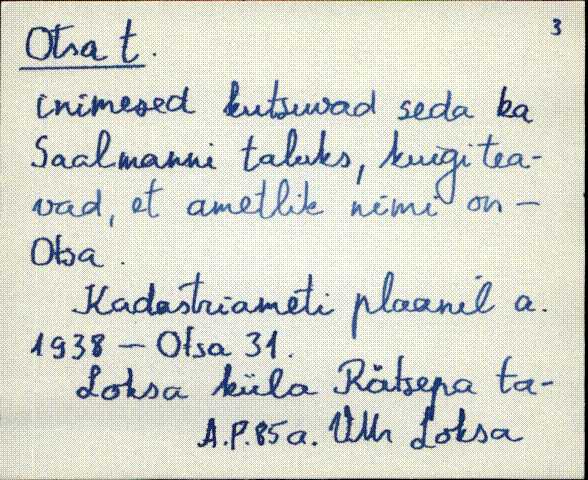 3
Otsa t.
inimesed kutsuvad seda ka
Saalmanni taluks, kuigi tea-
vad, et ametlik nimi on —
Otsa.
Kadastriameti plaanil a.
1938 — Otsa 31.
Loksa küla Rätsepa ta-
A.P. 85 a. Loksa